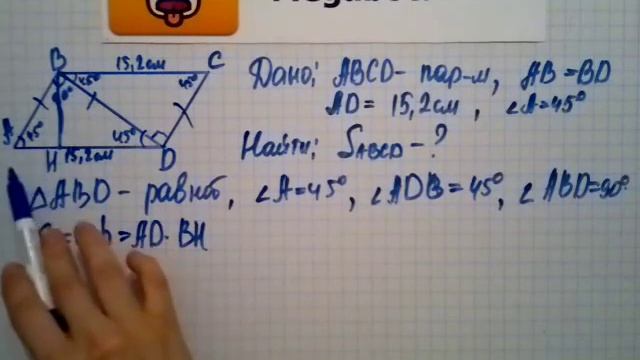 B 15,2см C
45° 45°
A 45° 45°
H 15,2см D
Дано: ABCD - пар-м, AB = BD
AD = 15,2см, ∠A = 45°
Найти: SABCD - ?
△ABD - равноб, ∠A = 45°, ∠ADB = 45°, ∠ABD = 90°
= AD · BH